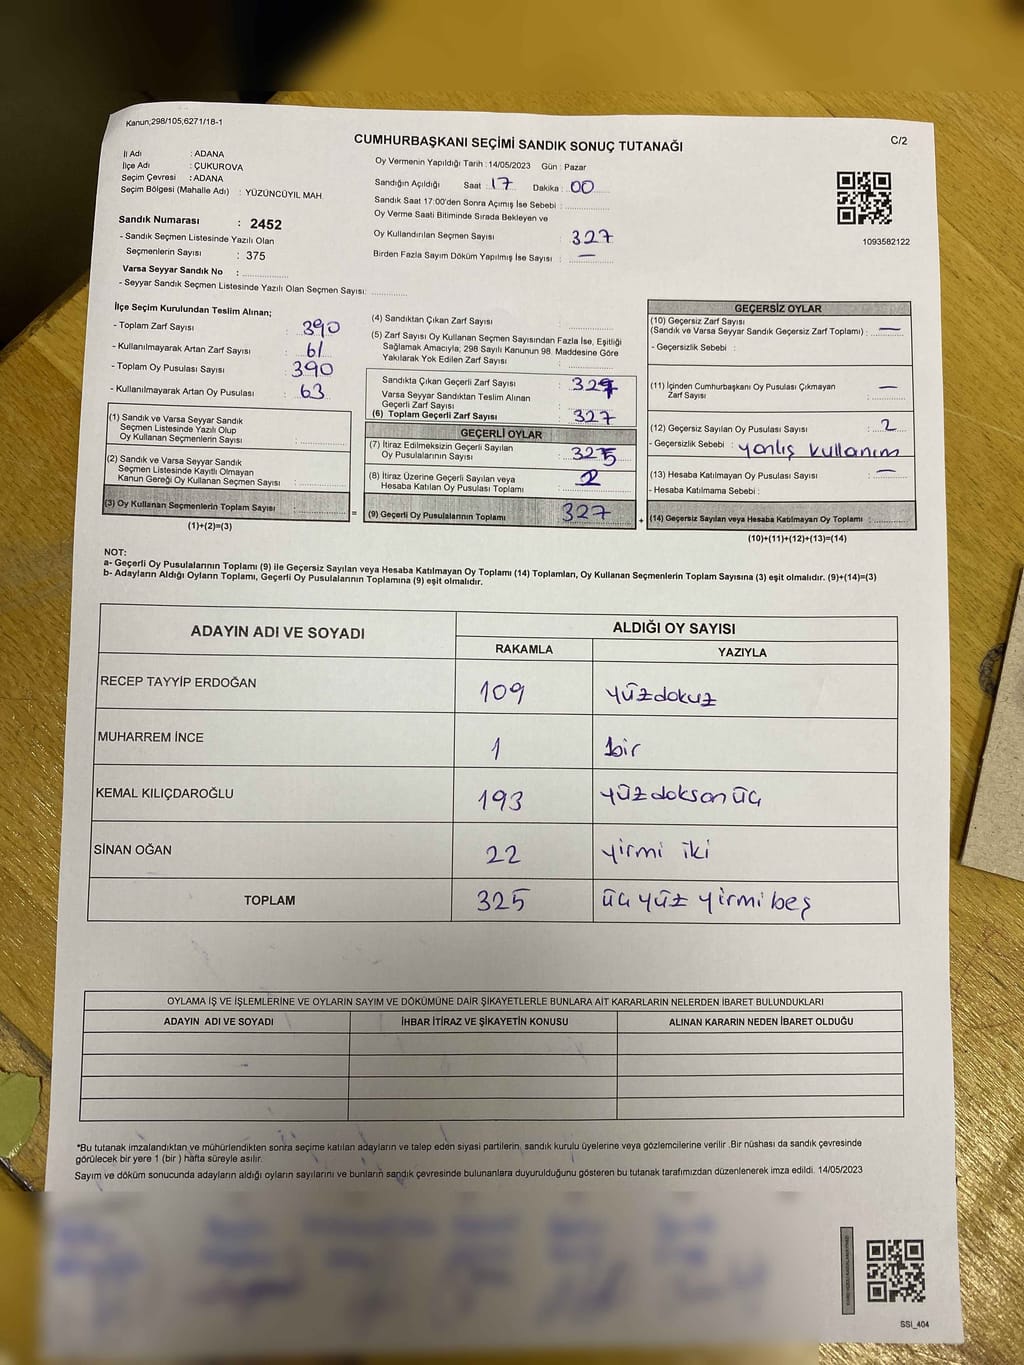 Kanun,298/105,6271/18-1
CUMHURBAŞKANI SEÇİMİ SANDIK SONUÇ TUTANAĞI
C/2
İl Adı : ADANA
İlçe Adı : ÇUKUROVA
Seçim Çevresi : ADANA
Seçim Bölgesi (Mahalle Adı) : YÜZÜNCÜYIL MAH.
Sandık Numarası : 2452
- Sandık Seçmen Listesinde Yazılı Olan
Seçmenlerin Sayısı : 375
Varsa Seyyar Sandık No :
- Seyyar Sandık Seçmen Listesinde Yazılı Olan Seçmen Sayısı:
Oy Vermenin Yapıldığı Tarih : 14/05/2023 Gün : Pazar
Sandığın Açıldığı Saat : 17 Dakika : 00
Sandık Saat 17:00'den Sonra Açımış İse Sebebi :
Oy Verme Saati Bitiminde Sırada Bekleyen ve
Oy Kullandırılan Seçmen Sayısı : 327
Birden Fazla Sayım Döküm Yapılmış İse Sayısı : —
1093582122
İlçe Seçim Kurulundan Teslim Alınan;
- Toplam Zarf Sayısı : 390
- Kullanılmayarak Artan Zarf Sayısı : 61
- Toplam Oy Pusulası Sayısı : 390
- Kullanılmayarak Artan Oy Pusulası : 63
(1) Sandık ve Varsa Seyyar Sandık
Seçmen Listesinde Yazılı Olup
Oy Kullanan Seçmenlerin Sayısı :
(2) Sandık ve Varsa Seyyar Sandık
Seçmen Listesinde Kayıtlı Olmayan
Kanun Gereği Oy Kullanan Seçmen Sayısı :
(3) Oy Kullanan Seçmenlerin Toplam Sayısı :
(1)+(2)=(3)
=
(4) Sandıktan Çıkan Zarf Sayısı :
(5) Zarf Sayısı Oy Kullanan Seçmen Sayısından Fazla İse, Eşitliği
Sağlamak Amacıyla; 298 Sayılı Kanunun 98. Maddesine Göre
Yakılarak Yok Edilen Zarf Sayısı :
Sandıkta Çıkan Geçerli Zarf Sayısı : 327
Varsa Seyyar Sandıktan Teslim Alınan
Geçerli Zarf Sayısı :
(6) Toplam Geçerli Zarf Sayısı : 327
GEÇERLİ OYLAR
(7) İtiraz Edilmeksizin Geçerli Sayılan
Oy Pusulalarının Sayısı : 325
(8) İtiraz Üzerine Geçerli Sayılan veya
Hesaba Katılan Oy Pusulası Toplamı : 2
(9) Geçerli Oy Pusulalarının Toplamı : 327
+
GEÇERSİZ OYLAR
(10) Geçersiz Zarf Sayısı
(Sandık ve Varsa Seyyar Sandık Geçersiz Zarf Toplamı) : —
- Geçersizlik Sebebi :
(11) İçinden Cumhurbaşkanı Oy Pusulası Çıkmayan
Zarf Sayısı : —
(12) Geçersiz Sayılan Oy Pusulası Sayısı : 2
- Geçersizlik Sebebi : yanlış kullanım
(13) Hesaba Katılmayan Oy Pusulası Sayısı : —
- Hesaba Katılmama Sebebi :
(14) Geçersiz Sayılan veya Hesaba Katılmayan Oy Toplamı :
(10)+(11)+(12)+(13)=(14)
NOT:
a- Geçerli Oy Pusulalarının Toplamı (9) ile Geçersiz Sayılan veya Hesaba Katılmayan Oy Toplamı (14) Toplamları, Oy Kullanan Seçmenlerin Toplam Sayısına (3) eşit olmalıdır. (9)+(14)=(3)
b- Adayların Aldığı Oyların Toplamı, Geçerli Oy Pusulalarının Toplamına (9) eşit olmalıdır.
ADAYIN ADI VE SOYADI ALDIĞI OY SAYISI
RAKAMLA YAZIYLA
RECEP TAYYİP ERDOĞAN 109 yüzdokuz
MUHARREM İNCE 1 bir
KEMAL KILIÇDAROĞLU 193 yüzdoksan üç
SİNAN OĞAN 22 yirmi iki
TOPLAM 325 üç yüz yirmi beş
OYLAMA İŞ VE İŞLEMLERİNE VE OYLARIN SAYIM VE DÖKÜMÜNE DAİR ŞİKAYETLERLE BUNLARA AİT KARARLARIN NELERDEN İBARET BULUNDUKLARI
ADAYIN ADI VE SOYADI İHBAR İTİRAZ VE ŞİKAYETİN KONUSU ALINAN KARARIN NEDEN İBARET OLDUĞU
*Bu tutanak imzalandıktan ve mühürlendikten sonra seçime katılan adayların ve talep eden siyasi partilerin, sandık kurulu üyelerine veya gözlemcilerine verilir .Bir nüshası da sandık çevresinde
görülecek bir yere 1 (bir ) hafta süreyle asılır.
Sayım ve döküm sonucunda adayların aldığı oyların sayılarını ve bunların sandık çevresinde bulunanlara duyurulduğunu gösteren bu tutanak tarafımızdan düzenlenerek imza edildi. 14/05/2023
SSİ_404